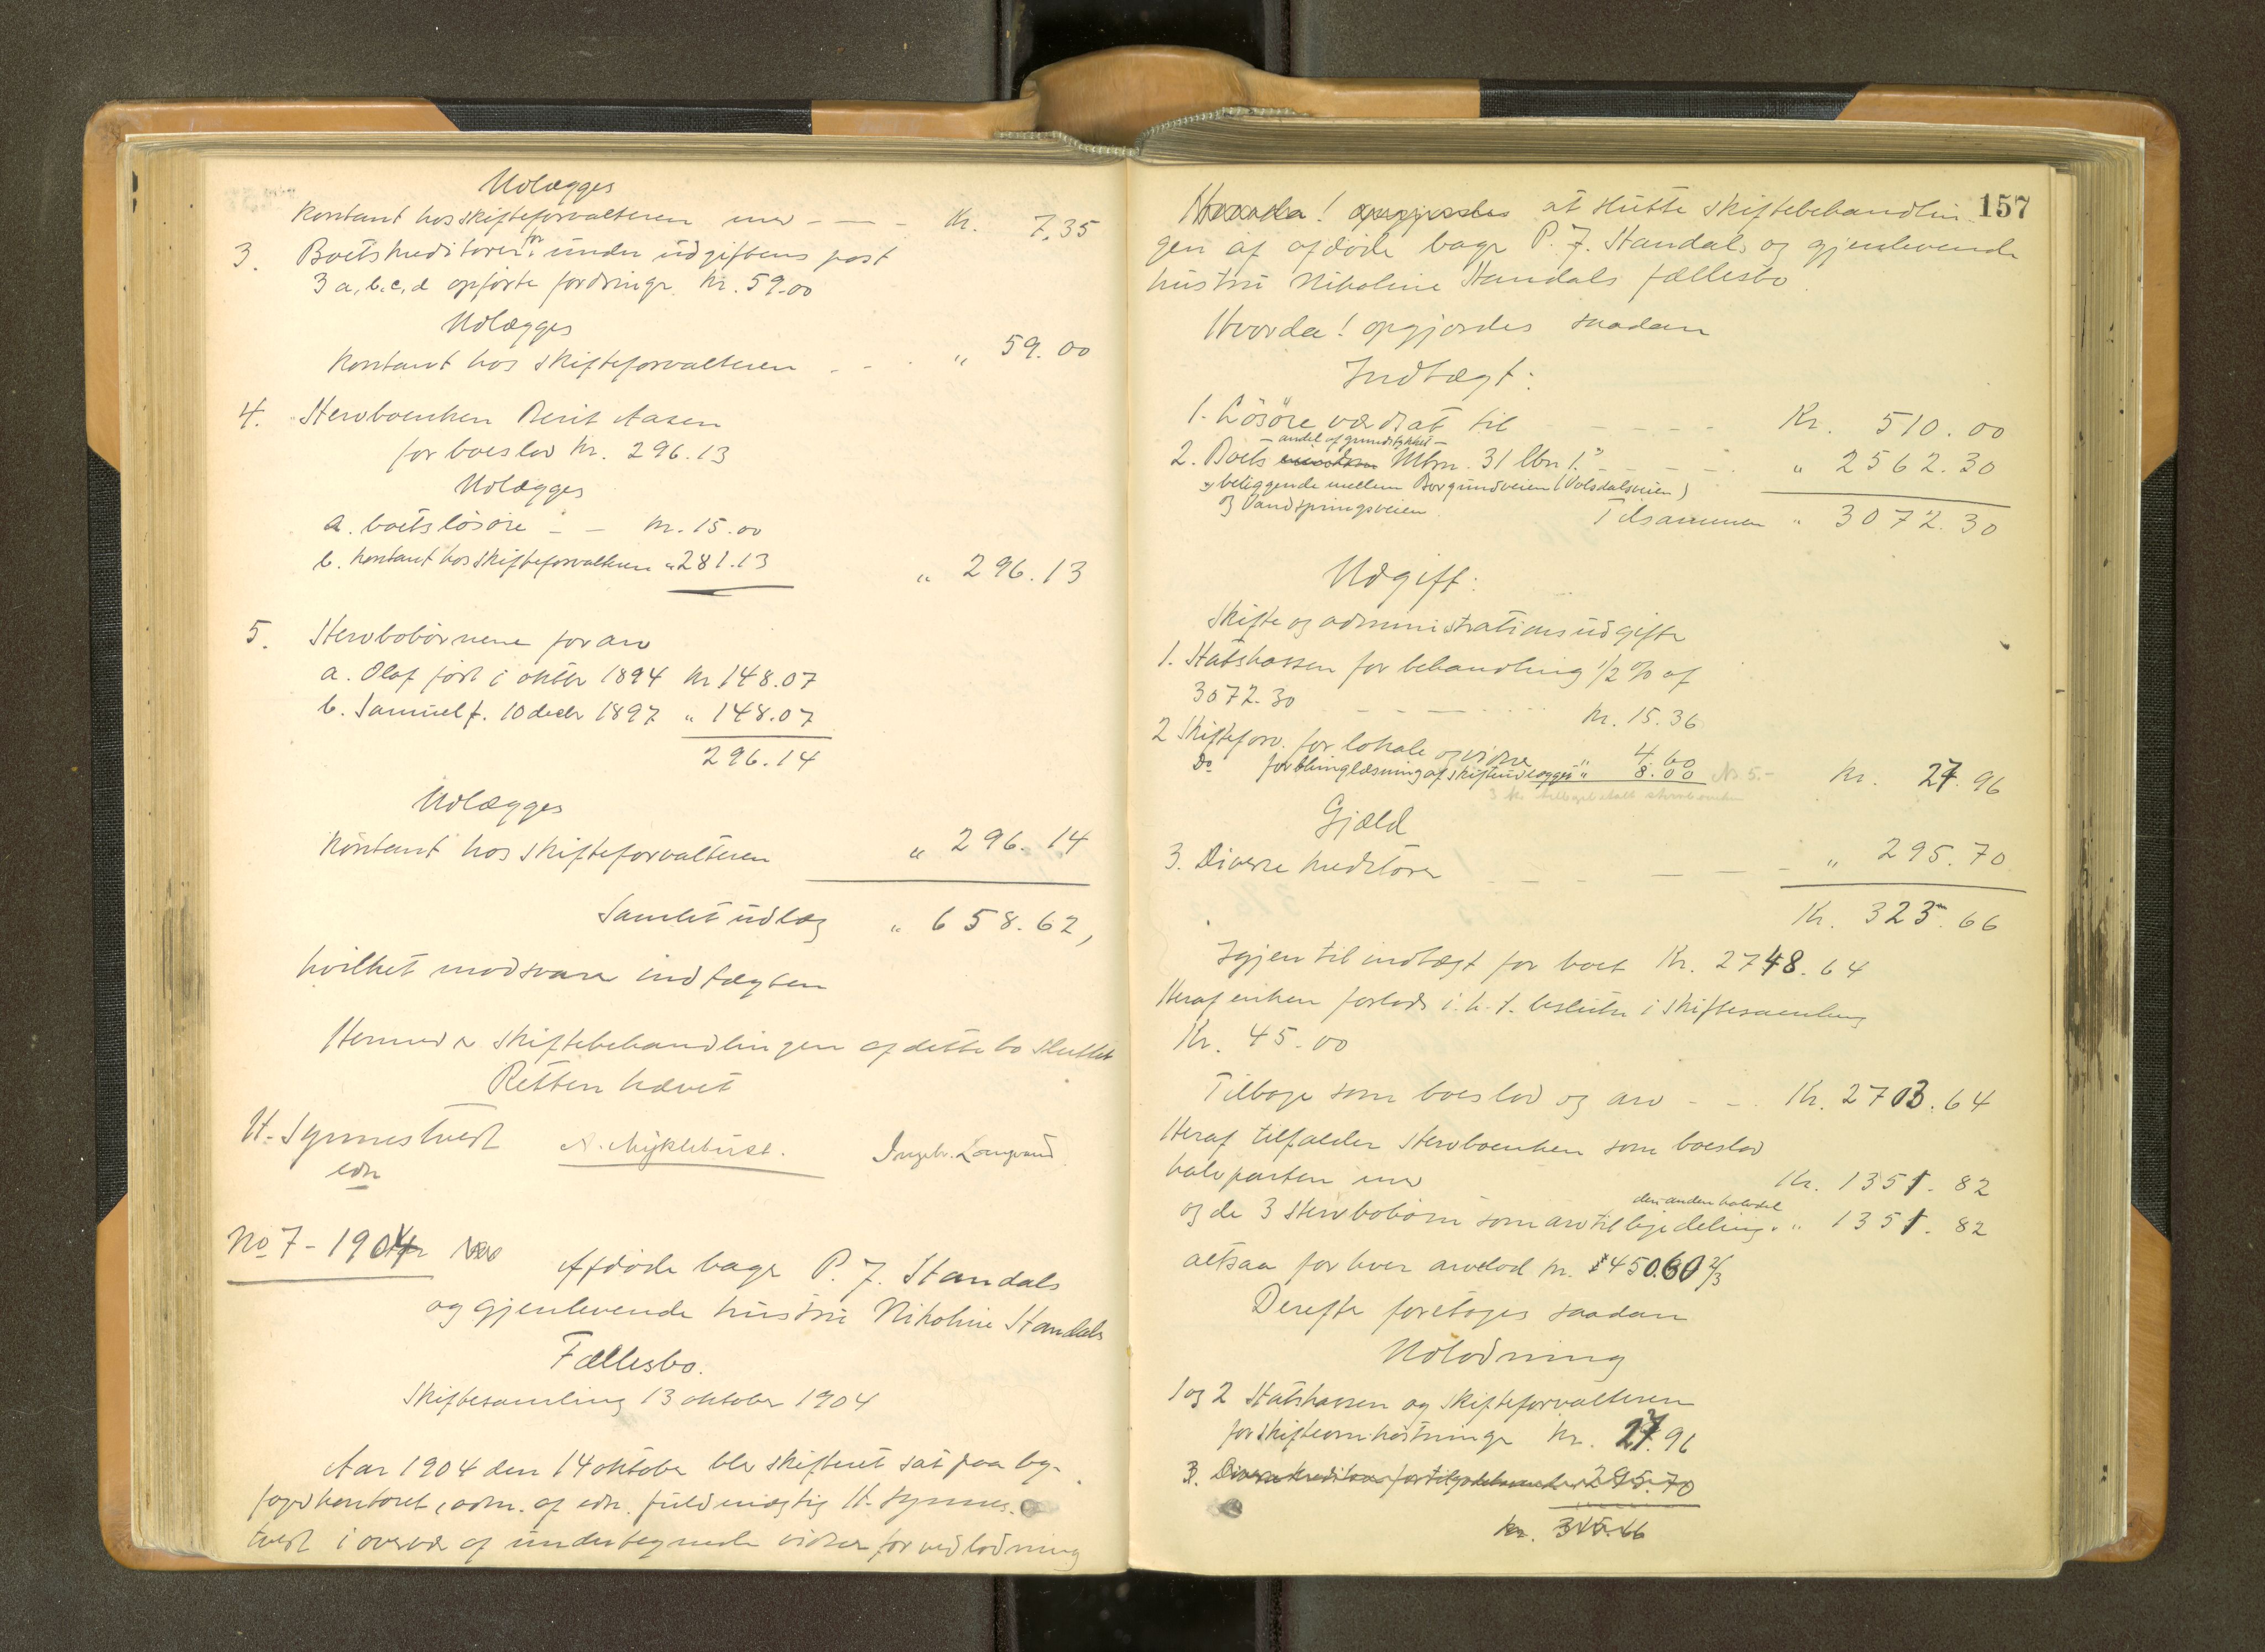 Udlægges
Kontant hos skifteforvalteren med - - - Kr. 7,35
3. Boets kreditorer for under udgiftens post
3 a, b, c, d opførte fordringer Kr. 59.00
Udlægges
Kontant hos skifteforvalteren - - . " 59.00
4. Stervboenken Berit Aasen
for boeslod Kr. 296.13
Udlægges
a. boets løsøre - - Kr. 15.00
b. kontant hos skifteforvalteren " 281.13 " 296.13
5. Stervbobørnene for arv
a. Olaf født i oktbr 1894 Kr 148.07
b. Samuel f. 10 decbr 1897 " 148.07
296.14
Udlægges
Kontant hos skifteforvalteren " 296.14
Samlet udlæg " 658.62,
hvilket modsvarer indtægten
Hermed er skiftebehandlingen af dette bo sluttet
Retten hævet
H. Synnestvedt A. Myklebust. Ingebr. Langvand
edn
No 7 - 1904 Afdøde bager P. J. Standals
og gjenlevende hustru Nikoline Standals
Fællesbo.
Skiftesamling 13 oktober 1904
Aar 1904 den 14 oktober blev skifteret sat paa by-
fogedkontoret, adm. af edn. fuldmægtig H. Synnes-
tvedt i overvær af undertegnede vidner for ved lodning
157
Hvorda! opgjordes at slutte skiftebehandlin
gen af afdøde bager P. J. Standal og gjenlevende
hustru Nikoline Standals fællesbo.
Hvorda! opgjordes saadan
Indtægt:
1. Løsøre værdsat til - - - - Kr. 510.00
- andel af grundstykket -
2. Boets Mbn. 31 lbn 1. " - - - - " 2562.30
beliggende mellem Borgundveien (Volsdalsveien)
og Vandspringsveien
Tilsammen " 3072.30
Udgift:
Skifte og administrationsudgifter
1. Statskassen for behandling 1/2 % af
3072.30 - - - - Kr. 15.36
2 Skifteforv. for lokale og vidner " 4.60
Do for thinglæsning af skifteudlægget " 8.00 Kr. 27.96
Gjæld
3. Diverse kreditorer - - - - - - " 295.70
Kr. 323.66
Igjen til indtægt for boet Kr. 2748.64
Heraf enken forlods i. h. t. beslutn i skiftesamling
Kr. 45.00
Tilbage som boeslod og arv - - Kr. 2703.64
Heraf tilfalder stervboenken som boeslod
halvparten med Kr. 1351.82
den anden halvdel
og de 3 stervbobørn som arv til lige deling " 1351.82
altsaa for hver arvelod Kr. 450.60 2/3
Derefter foretoges saadan
Udlodning
1 og 2 Statskassen og skifteforvalteren
for skifteomkostninger Kr. 27.96
3. Diverse kreditorer for tilgodehavende 295.70
Kr.